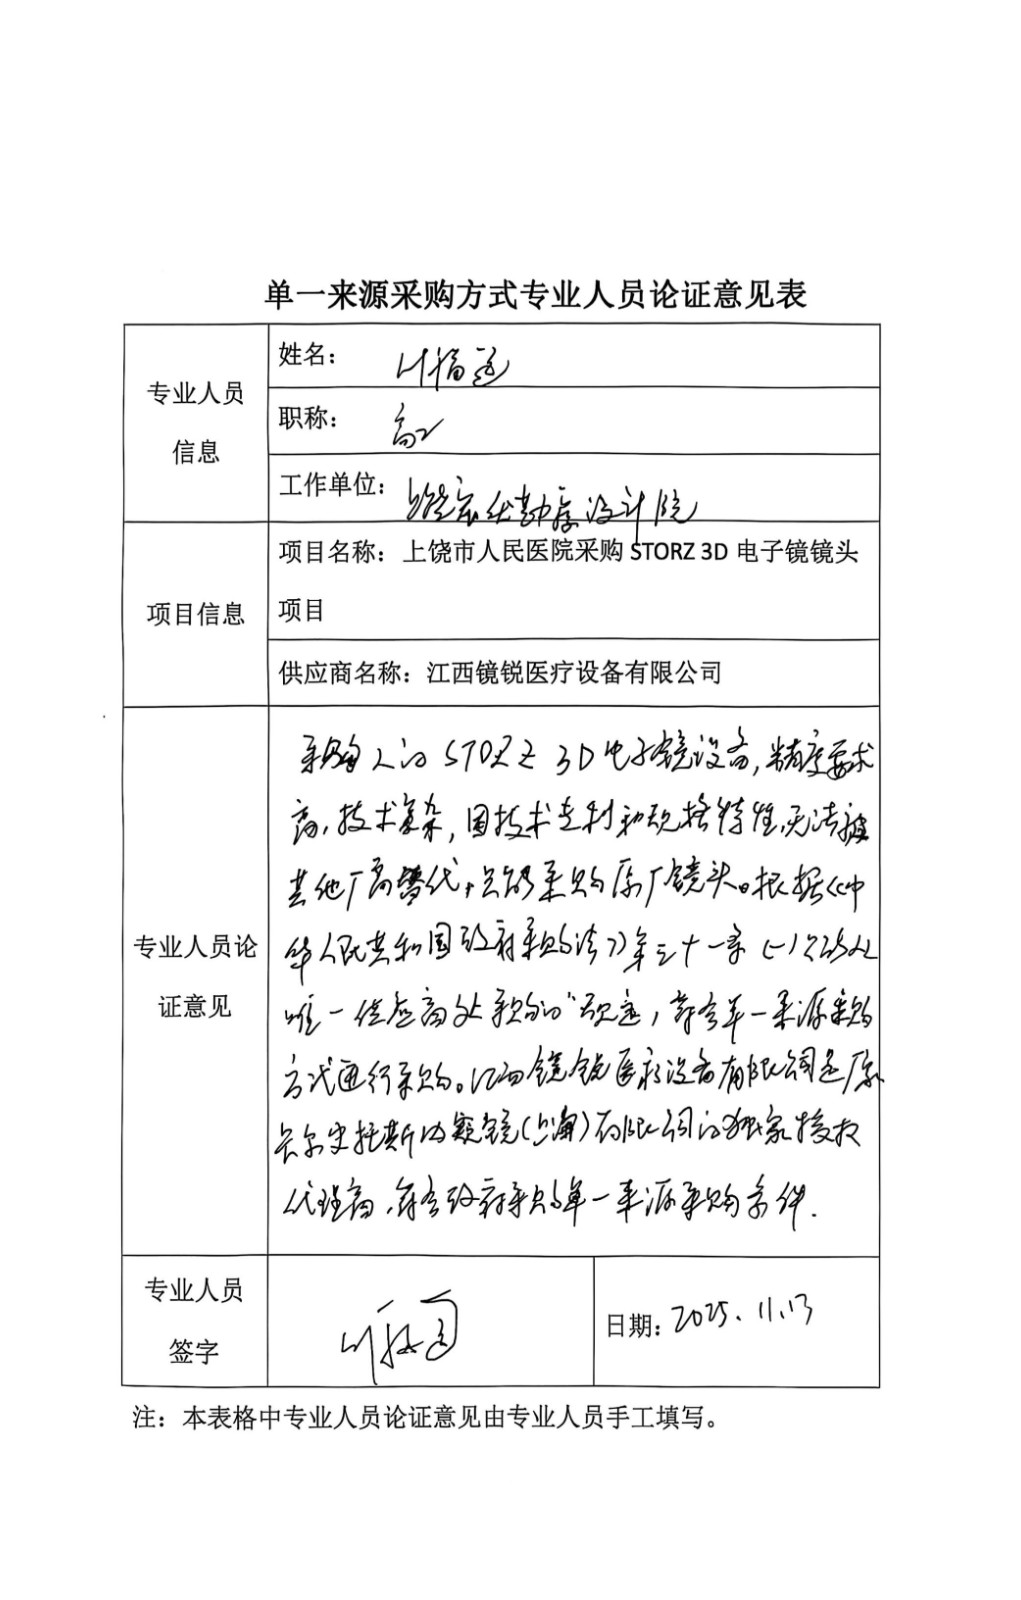 单一来源采购方式专业人员论证意见表
专业人员
信息
姓名：
职称： 高工
工作单位： 勘察设计院
项目信息
项目名称：上饶市人民医院采购 STORZ 3D 电子镜镜头
项目
供应商名称：江西镜锐医疗设备有限公司
专业人员论
证意见
采购人的STORZ 3D电子镜设备，精度要求
高，技术复杂，因技术专利和规格特性，无法被
其他厂商替代，只能采购原厂镜头。根据《中
华人民共和国政府采购法》第三十一条（一）只能从
唯一供应商处采购的”规定，符合单一来源采购
方式进行采购。江西镜锐医疗设备有限公司是厂家
卡尔史托斯内窥镜（上海）有限公司的独家授权
代理商，符合政府采购单一来源采购条件.
专业人员
签字
日期：2025.11.13
注：本表格中专业人员论证意见由专业人员手工填写。